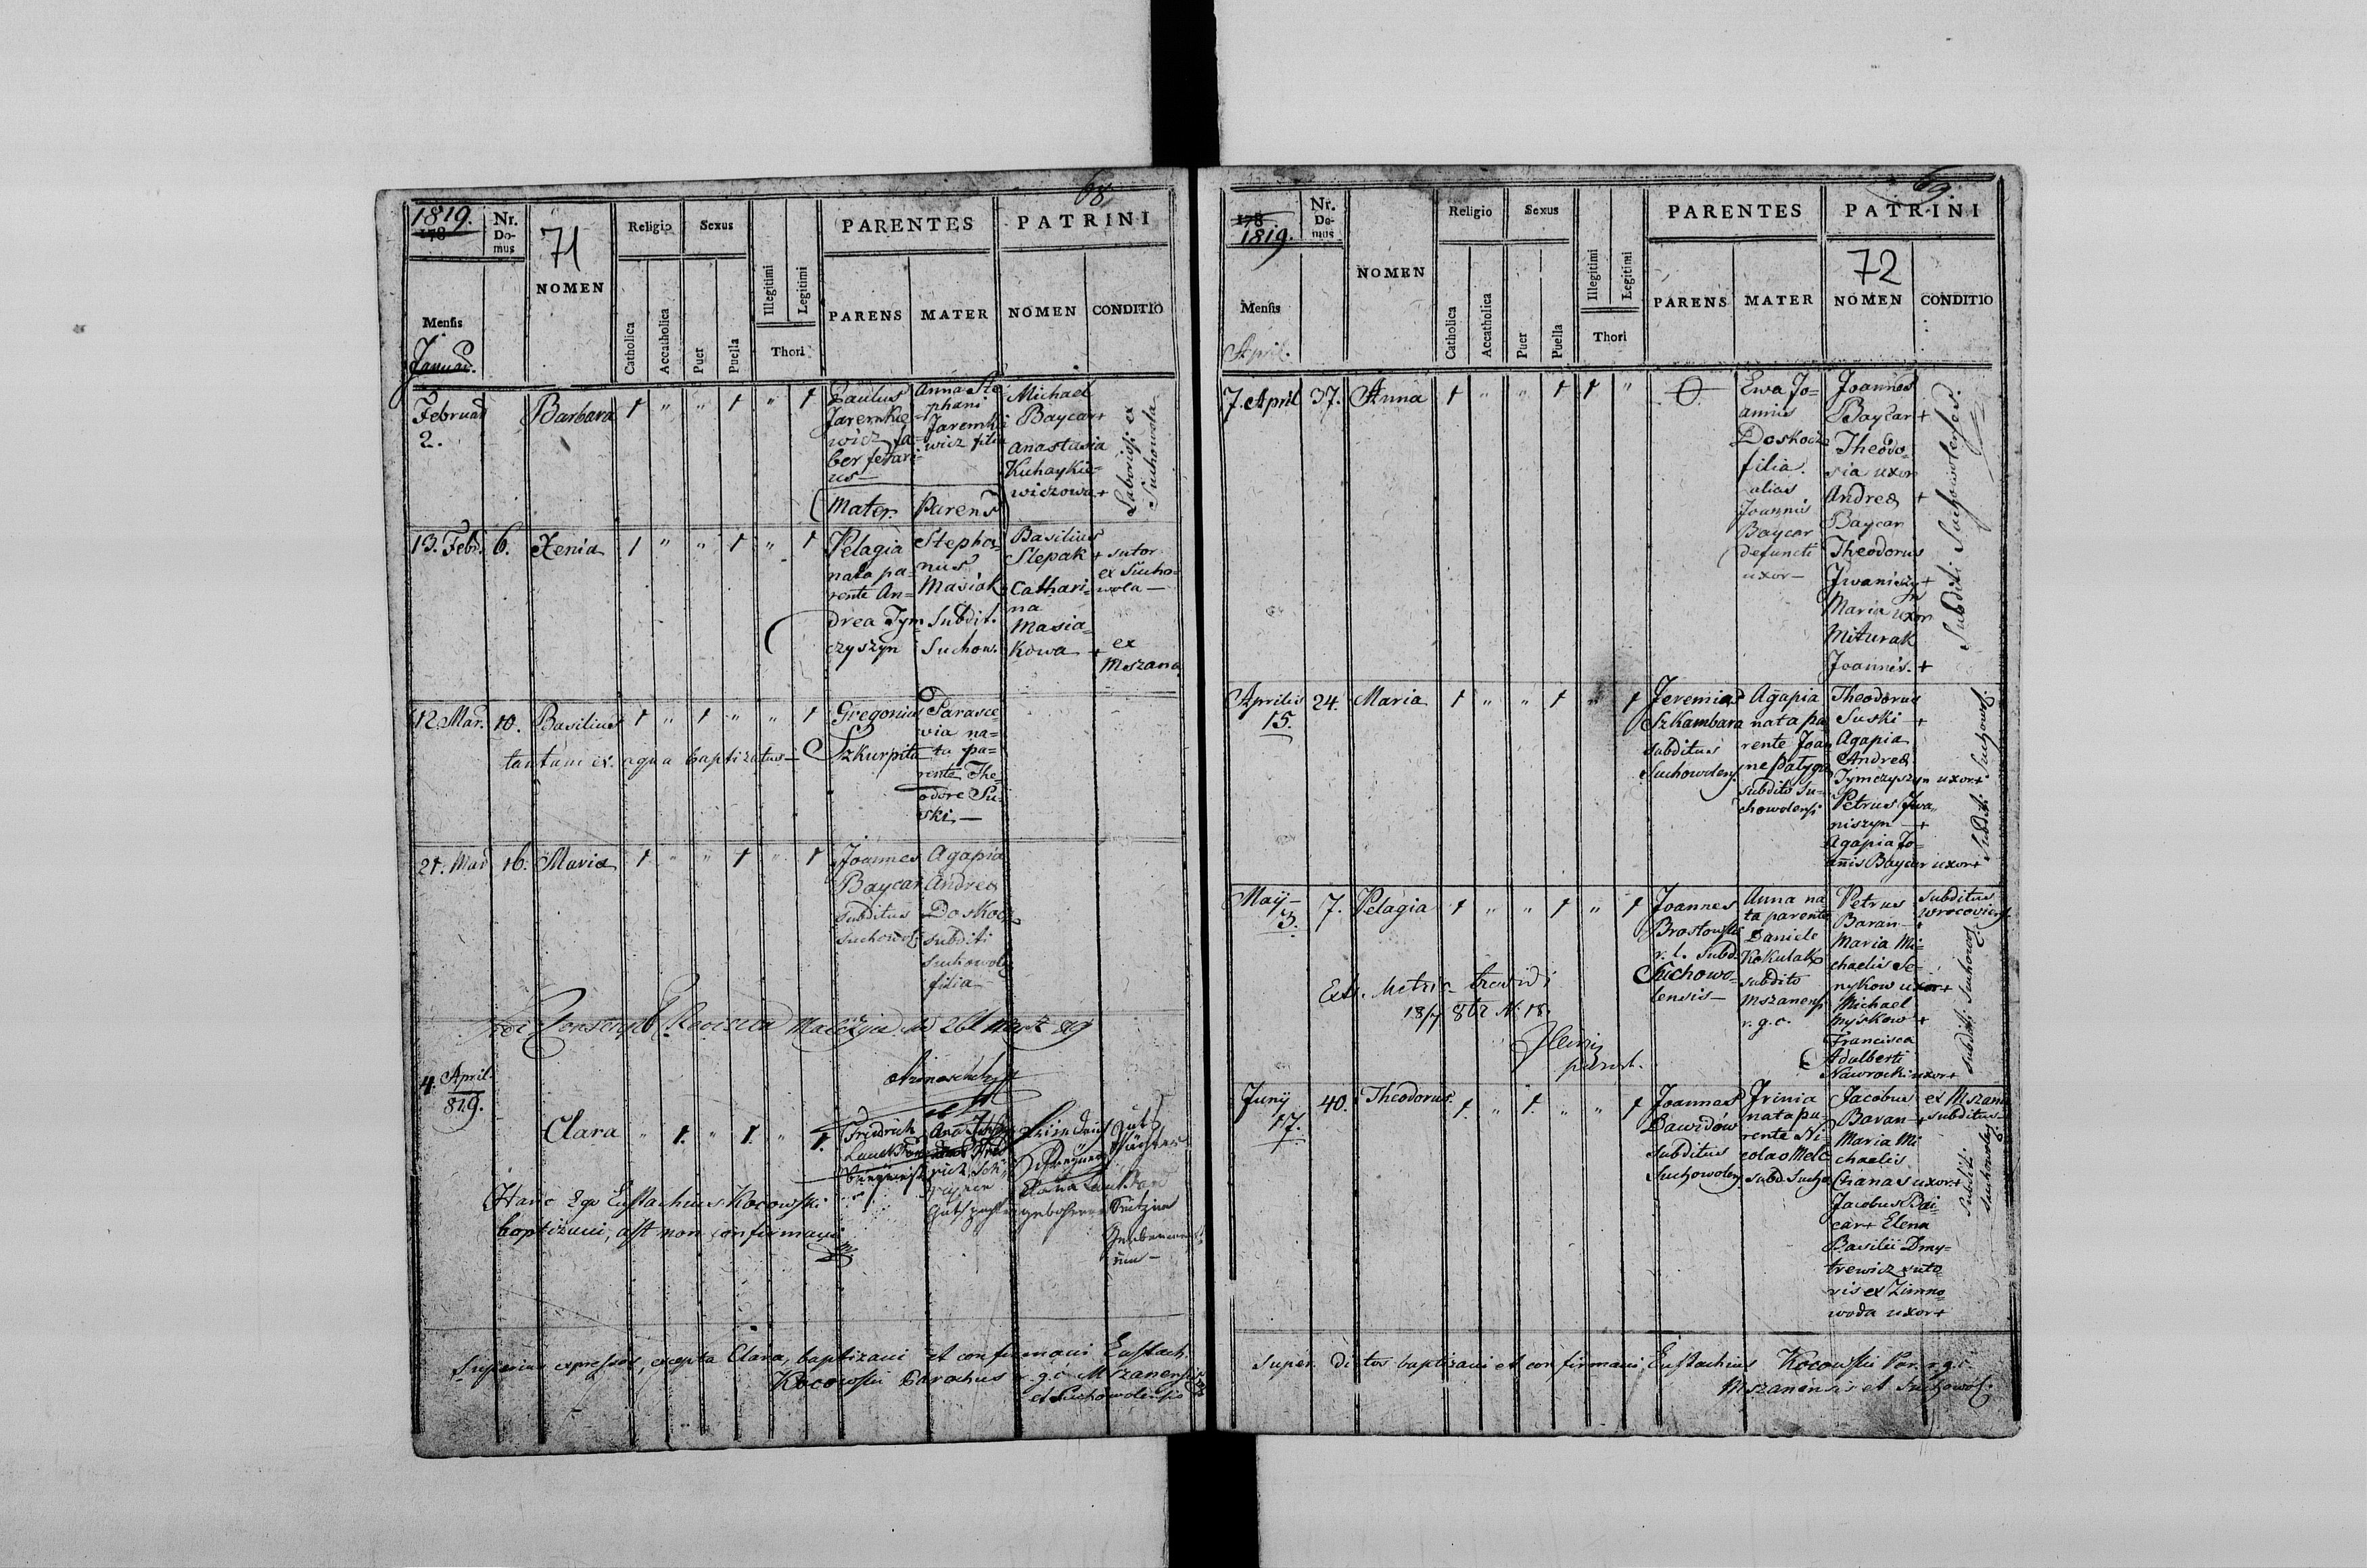 68
1819.
178
Nr. Domus
71
NOMEN
Religio
Sexus
Catholica
Accatholica
Puer
Puella
Illegitimi
Legitimi
Thori
PARENTES
PATRINI
PARENS
MATER
NOMEN
CONDITIO
Mensis
Januar.
Februar
2.
Barbara
1 " " 1 " 1
Paulus
Jaremke=
wicz fa=
ber ferrari=
us—
Mater.
Anna Ste
phani
Jaremke
wicz filia
Parens
Michael
Baycar+
Anastasia
Kuhaykie=
wiczowa+
Laboriosi ex
Suchowola
13. Febr. 6. Xenia
1 " " 1 " 1
Pelagia
nata pa=
rente An=
drea Tym
czyszyn
Stepha=
nus
Masiak
Subdit.
Suchow.
Basilius
Slepak +
Cathari=
na
Masia=
kowa +
sutor
ex Sucho=
wola —
ex
Mszana
12. Mar. 10. Basilius
1 " 1 " " 1
tantum ex aqua baptizatus—
Gregorius
Szkurpita
Parasce
via na=
ta pa=
rente The=
odore Su
ski.—
21. Mar 16. Maria
1 " " 1 " 1
Joannes
Baycar
subditus
Suchowol.
Agapia
Andreæ
Doskocz
subditi
Suchowol
filia—
4. April.
819.
Clara
" 1. " 1. " 1.
Fridrich
Hanc Ego Eustachius Kocowski
baptizavi, ast non confirmavi
Superius expressos, excepta Clara, baptizavi et confirmavi Eustach.
Kocowski Parochus r. g. c. Mszanensis
et Suchowolensis
69.
178
1819.
Nr. Domus
NOMEN
Religio
Sexus
Catholica
Accatholica
Puer
Puella
Illegitimi
Legitimi
Thori
PARENTES
PATRINI
72
PARENS
MATER
NOMEN
CONDITIO
Mensis
April.
7. April 37. Anna
1 " " 1 1 "
Ewa Jo=
annis
Doskocz
filia.
alias
Joannis
Baycar
defuncti
uxor—
Joannes
Baycar +
Theodo=
sia uxor
Andreæ +
Baycar
Theodorus
Jwaniszy+
n
Maria uxor
Miturak
Joannis. +
Subditi Suchowolenses.
Aprilis 24. Maria
15.
1 " " 1 " 1
Jeremias
Szkambara
subditus
Suchowolens.
Agapia
nata pa
rente Joan
ne Patyga
subdito Su=
chowolensi
Theodorus
Suski +
Agapia
Andreæ
Tymczyszyn uxor+
Petrus Jwa=
niszyn +
Agapia Jo=
annis Baycar uxor+
Subditi Suchowol.
Maÿ 7. Pelagia
3.
1 " " 1 " 1
Joannes
r. l. Subd.
Suchowo=
lensis—
Anna na
ta parente
Daniele
Kokulak
subdito
Mszanensi
r. g. c.
Petrus
Baran +
Maria Mi=
chaelis Se=
nykow uxor+
Michael
Myskow +
Francisca
Adalberti
Nawrocki uxor+
subditus
subditi Suchowol.
Extr. Metric.
Junÿ 40. Theodorus
17.
1. " 1. " " 1
Joannes
Dawidow
subditus
Suchowolens.
Irinia
nata pa=
rente Ni=
colao Melc
subd. Sucho
Jacobus
Baran +
Maria Mi
chaelis
Chanas uxor+
Jacobus Bai=
car+ Elena
Basilii Dmy=
trewicz suto=
ris ex Zimno
woda uxor+
ex Mszana
subditus
subditi
Suchowolens.
Super dictos baptizavi et confirmavi Eustachius Kocowski Par. r. g. c.
Mszanensis et Suchowol.